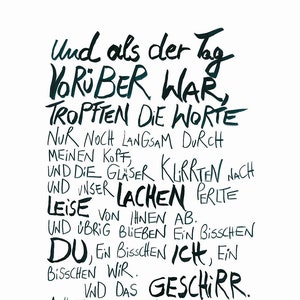 Und als der Tag
VORÜBER WAR,
TROPFTEN DIE WORTE
NUR NOCH LANGSAM DURCH
MEINEN KOPF,
UND DIE GLÄSER KLIRRTEN NACH
UND UNSER LACHEN PERLTE
LEISE VON IHNEN AB.
UND ÜBRIG BLIEBEN EIN BISSCHEN
DU, EIN BISSCHEN ICH, EIN
BISSCHEN WIR.
UND DAS GESCHIRR.